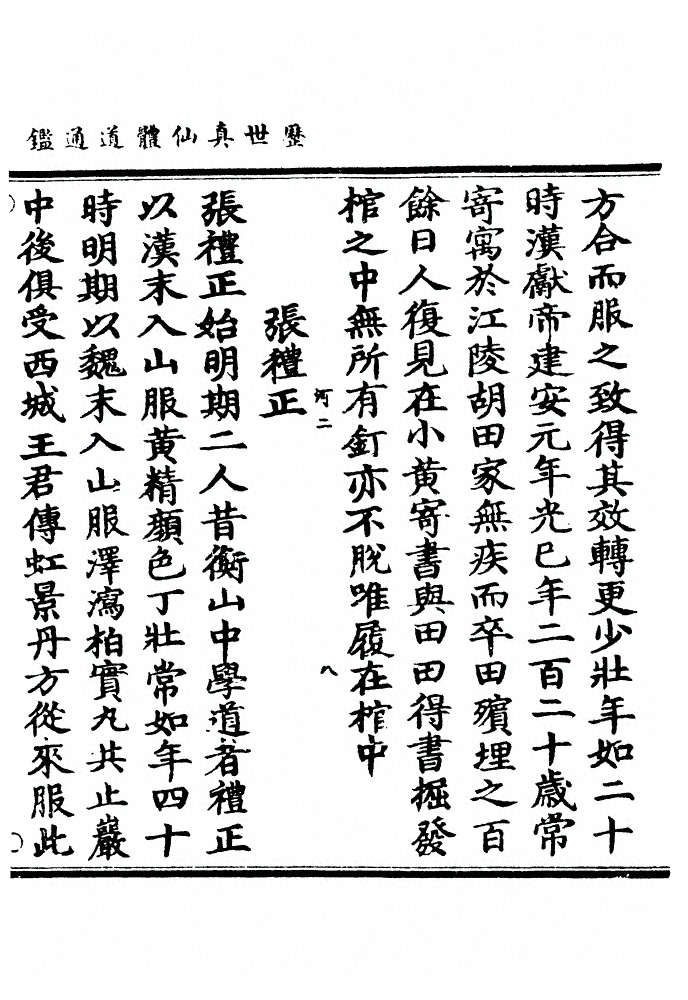 歷世真仙體道通鑑
方合而服之致得其效轉更少壯年如二十
時漢獻帝建安元年光巳年二百二十歲常
寄寓於江陵胡田家無疾而卒田殯埋之百
餘日人復見在小黃寄書與田田得書掘發
棺之中無所有釘亦不脫唯履在棺中
河二
八
張禮正
張禮正始明期二人昔衡山中學道者禮正
以漢末入山服黃精顔色丁壯常如年四十
時明期以魏末入山服澤瀉柏實丸共止巖
中後俱受西城王君傳虹景丹方從來服此